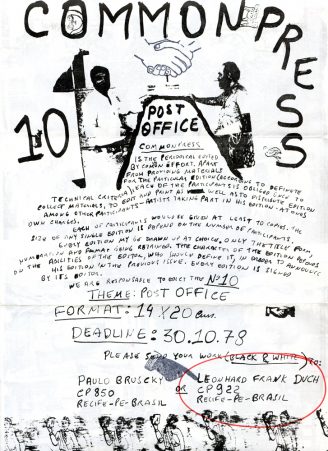 COMMONPRESS
10
POST
OFFICE
COMMONPRESS
IS THE PERIODICAL EDITED
BY COMMON EFFORT. APART
FROM PROVIDING MATERIALS
FOR THE PARTICULAR EDITION (ACCORDING TO DEFINITE
TECHNICAL CRITERIA) EACH OF THE PARTICIPANTS IS OBLIGED ONCE TO
COLLECT MATERIALS, TO EDIT AND PRINT AS WELL AS TO DISTRIBUTE EDITION
AMONG OTHER PARTICIPANTS-ARTISTS TAKING PART IN HIS EDITION-AT OWN
OWN CHARGES.
EACH OF PARTICIPANTS WOULD BE GIVEN AT LEAST TWO COPIES. THE
SIZE OF ANY SINGLE EDITION IS DEPEND ON THE NUMBER OF PARTICIPANTS.
EVERY EDITION MY BE DRAWN UP AT CHOICE, ONLY THE TITLE FORM
NUMERATION AND FORMAT BEING OBTAINED. THE CHARACTER OF THE EDITION DEPENDS
ON THE ABILITIES OF THE EDITOR, WHO SHOULD DEFINE IT, IN ORDER TO ANNOUNCE
THE HIS EDITION IN THE PREVIOUS ISSUE. EVERY EDITION IS SIGNED
BY ITS EDITOR.
WE ARE RESPONSABLE TO EDICT THE Nº10
THEME: POST OFFICE
FORMAT: 14 X 20 cms.
DEADLINE: 30.10.78
PLEASE SEND YOUR WORK (BLACK & WHITE) TO:
PAULO BRUSCKY OR LEONHARD FRANK DUCH
CP 850 CP 922
RECIFE-PE-BRASIL RECIFE-PE-BRASIL